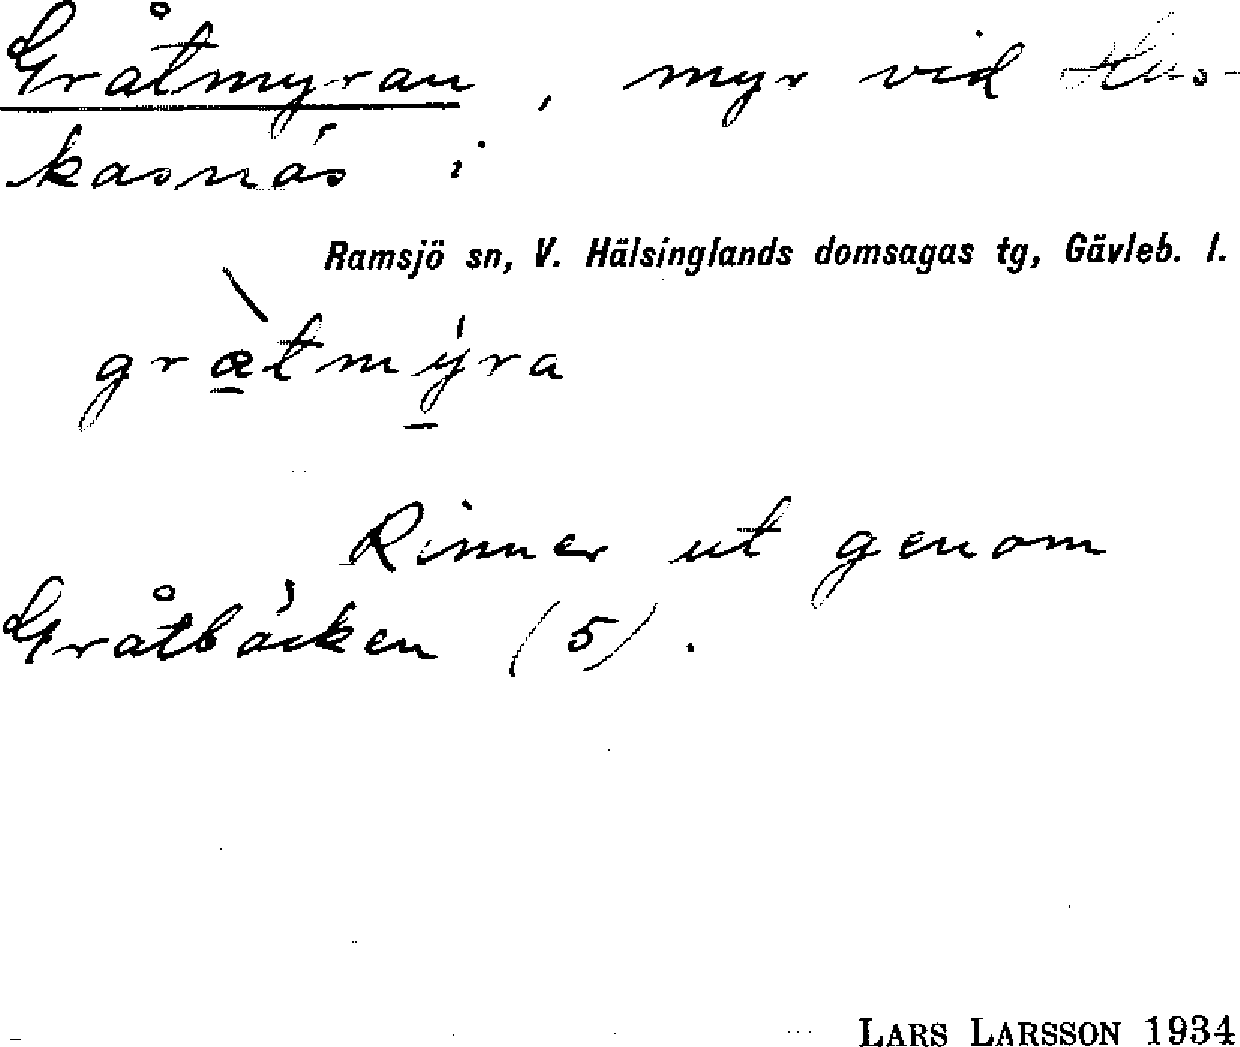 Gråtmyran, myr vid Hus-
kasnäs i
Ramsjö sn, V. Hälsinglands domsagas tg, Gävleb. l.
græ̠̀tmý̠ra
Rinner ut genom
Gråtbäcken (5).
LARS LARSSON 1934